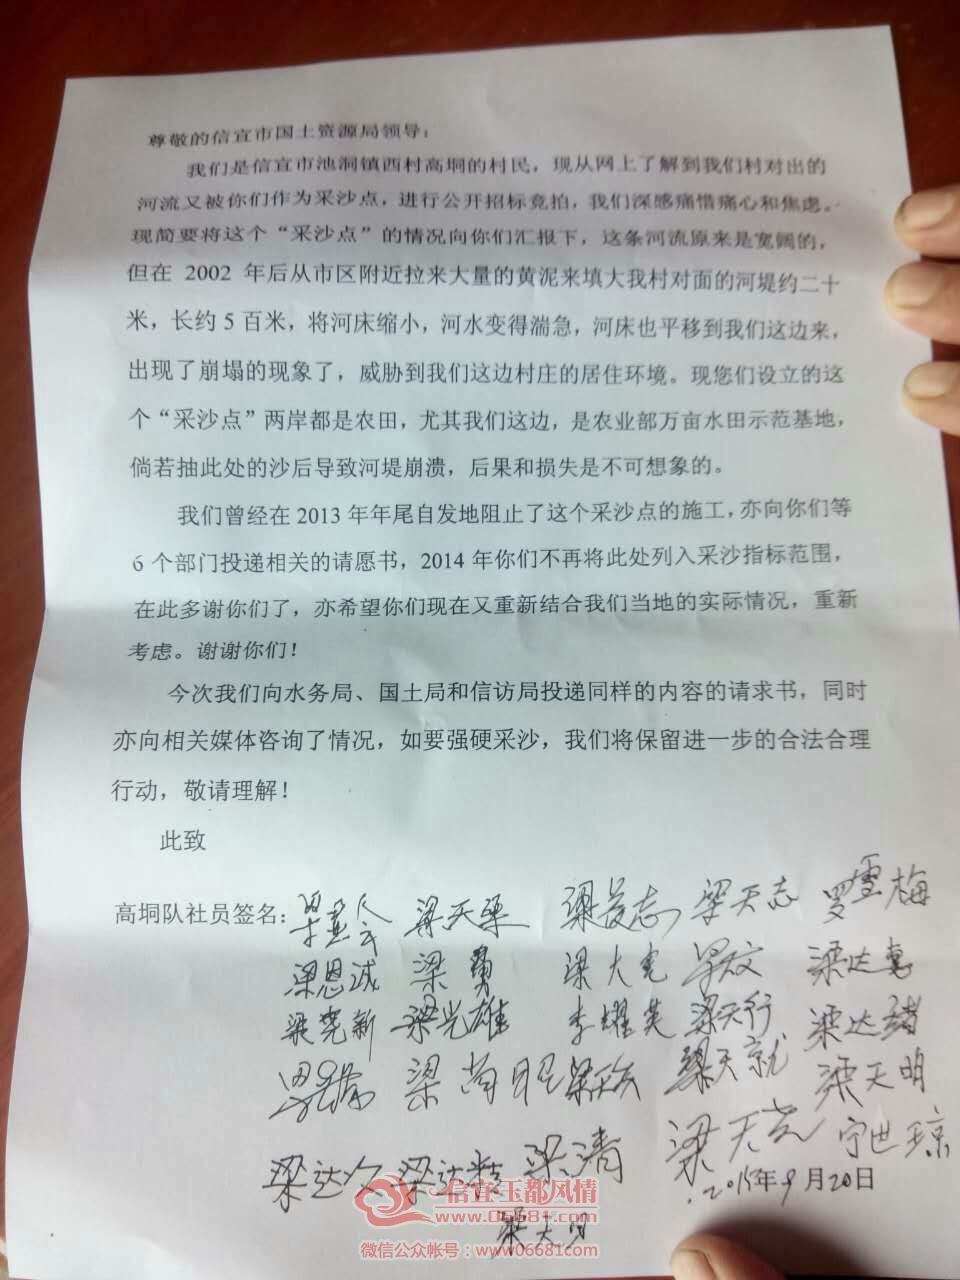 尊敬的信宜市国土资源局领导：
我们是信宜市池洞镇西村高垌的村民，现从网上了解到我们村对出的
河流又被你们作为采沙点，进行公开招标竞拍，我们深感痛惜痛心和焦虑。
现简要将这个“采沙点”的情况向你们汇报下，这条河流原来是宽阔的，
但在 2002 年后从市区附近拉来大量的黄泥来填大我村对面的河堤约二十
米，长约 5 百米，将河床缩小，河水变得湍急，河床也平移到我们这边来，
出现了崩塌的现象了，威胁到我们这边村庄的居住环境。现您们设立的这
个“采沙点”两岸都是农田，尤其我们这边，是农业部万亩水田示范基地，
倘若抽此处的沙后导致河堤崩溃，后果和损失是不可想象的。
我们曾经在 2013 年年尾自发地阻止了这个采沙点的施工，亦向你们等
6 个部门投递相关的请愿书，2014 年你们不再将此处列入采沙指标范围，
在此多谢你们了，亦希望你们现在又重新结合我们当地的实际情况，重新
考虑。谢谢你们！
今次我们向水务局、国土局和信访局投递同样的内容的请求书，同时
亦向相关媒体咨询了情况，如要强硬采沙，我们将保留进一步的合法合理
行动，敬请理解！
此致
高垌队社员签名： 梁天 梁 志 梁天志 罗雪梅
梁恩诚 梁勇 梁大 梁 文 梁达惠
梁 新 梁光雄 李耀英 梁天行 梁达绪
梁 梁 梁天就 梁天明
梁达 梁达 梁清 梁天 宁世琼
2015年9月20日
信宜玉都风情
www.06681.com
梁大
微信公众帐号：www06681com